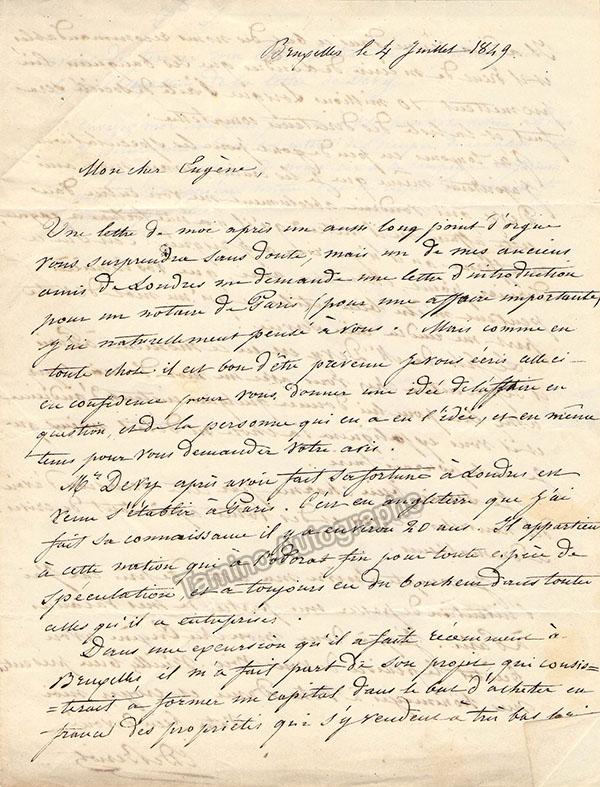 Bruxelles le 4 Juillet 1849
Mon cher Eugène,
Une lettre de moi après un aussi long point d'orgue
vous surprendra sans doute, mais un de mes anciens
amis de Londres me demande une lettre d'introduction
pour un notaire de Paris (pour une affaire importante)
j'ai naturellement pensé à vous. Mais comme en
toute chose il est bon d'être prévenu je vous écris celle ci
en confidence pour vous donner une idée de l'affaire en
question, et de la personne qui en a eu l'idée, et en même
tems pour vous demander votre avis.
Mr. Devy après avoir fait sa fortune à Londres est
venu s'établir à Paris. C'est en angleterre que j'ai
fait sa connaissance il y a environ 20 ans. Il appartien
à cette nation qui a l'odorat fin pour toute espèce de
spéculation et a toujours eu du bonheur dans toute
celles qu'il a entreprises.
Dans une excursion qu'il a fait récemment à
Bruxelles il m'a fait part de son projet qui consis=
=terait à former un capital dans le but d'acheter en
france des propriétés qui s'y vendent à très bas
Tamino Autographs